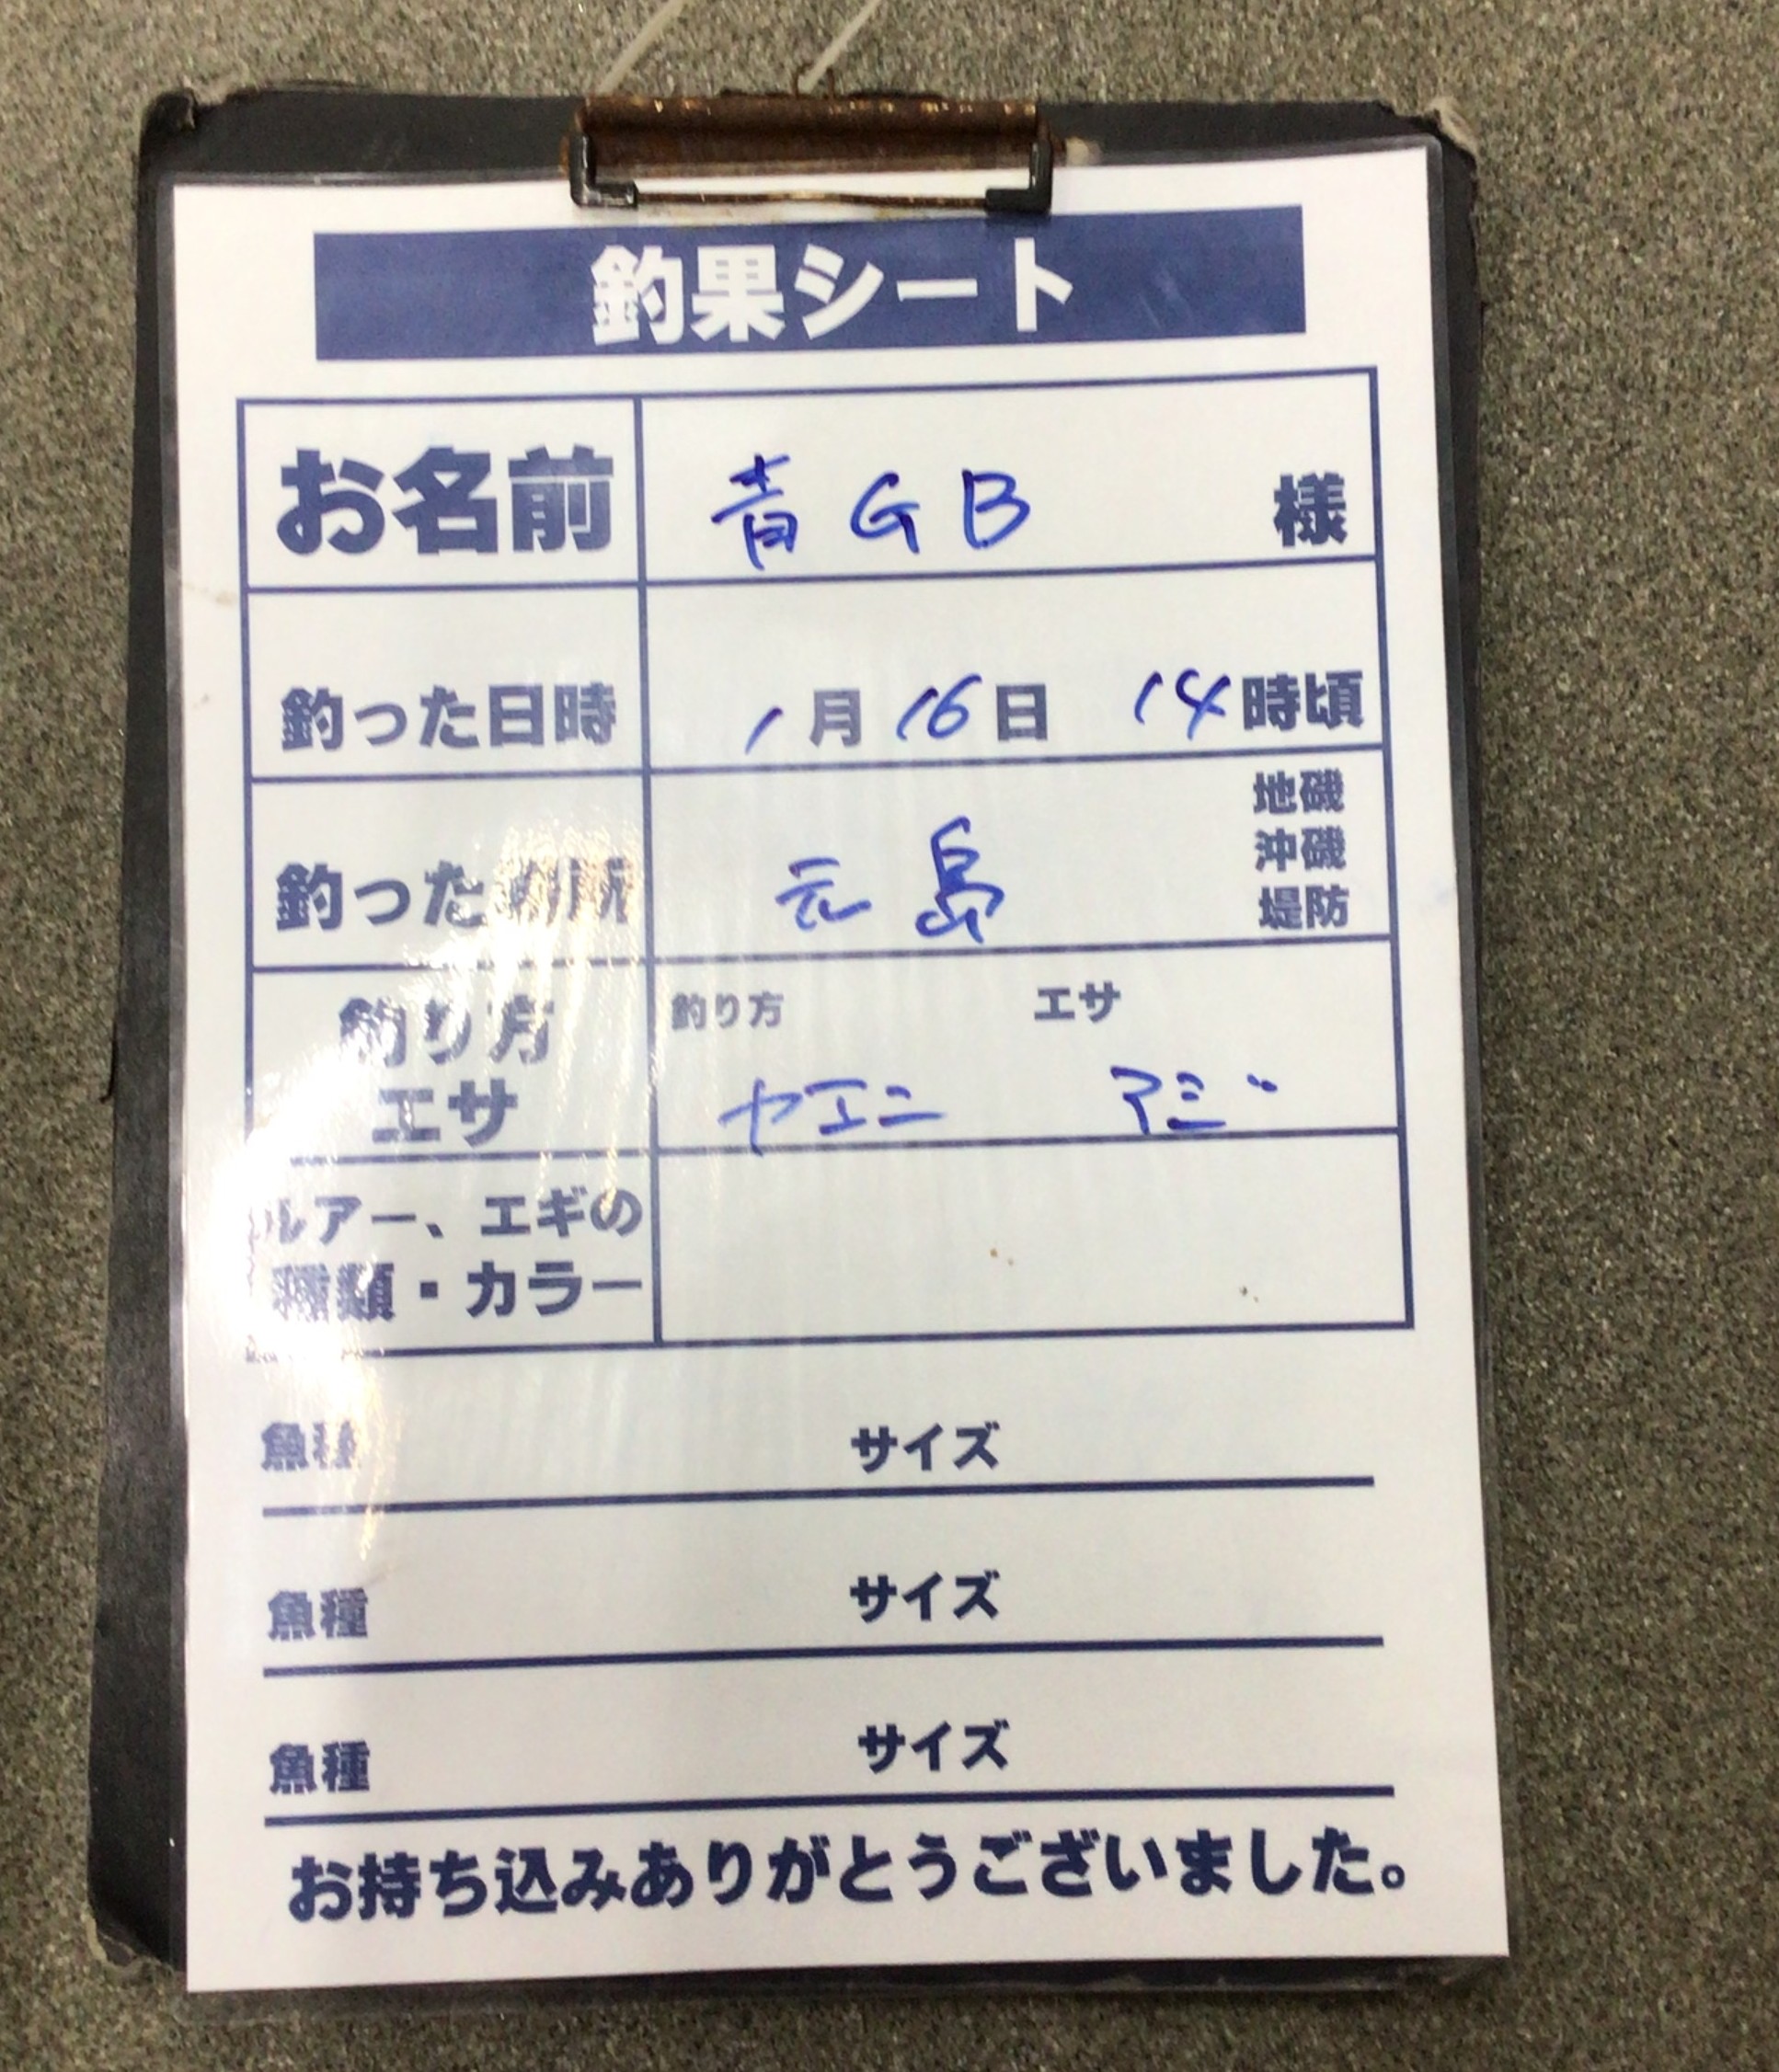 釣果シート
お名前 青GB 様
釣った日時 1月16日 14時頃
地磯
沖磯
釣った 元島 堤防
釣り方 釣り方 エサ
エサ ヤエン アジ
ルアー、エギの
種類・カラー
魚種 サイズ
魚種 サイズ
魚種 サイズ
お持ち込みありがとうございました。